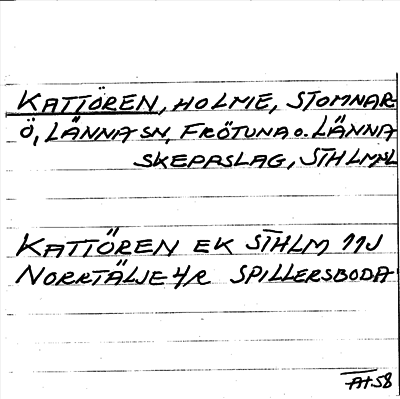 KATTÖREN, HOLME, STOMNAR-
Ö, LÄNNA SN, FRÖTUNA O. LÄNNA
SKEPPSLAG, STHLMS L
KATTÖREN EK STHLM 11J
NORRTÄLJE 4R SPILLERSBODA
AH-58